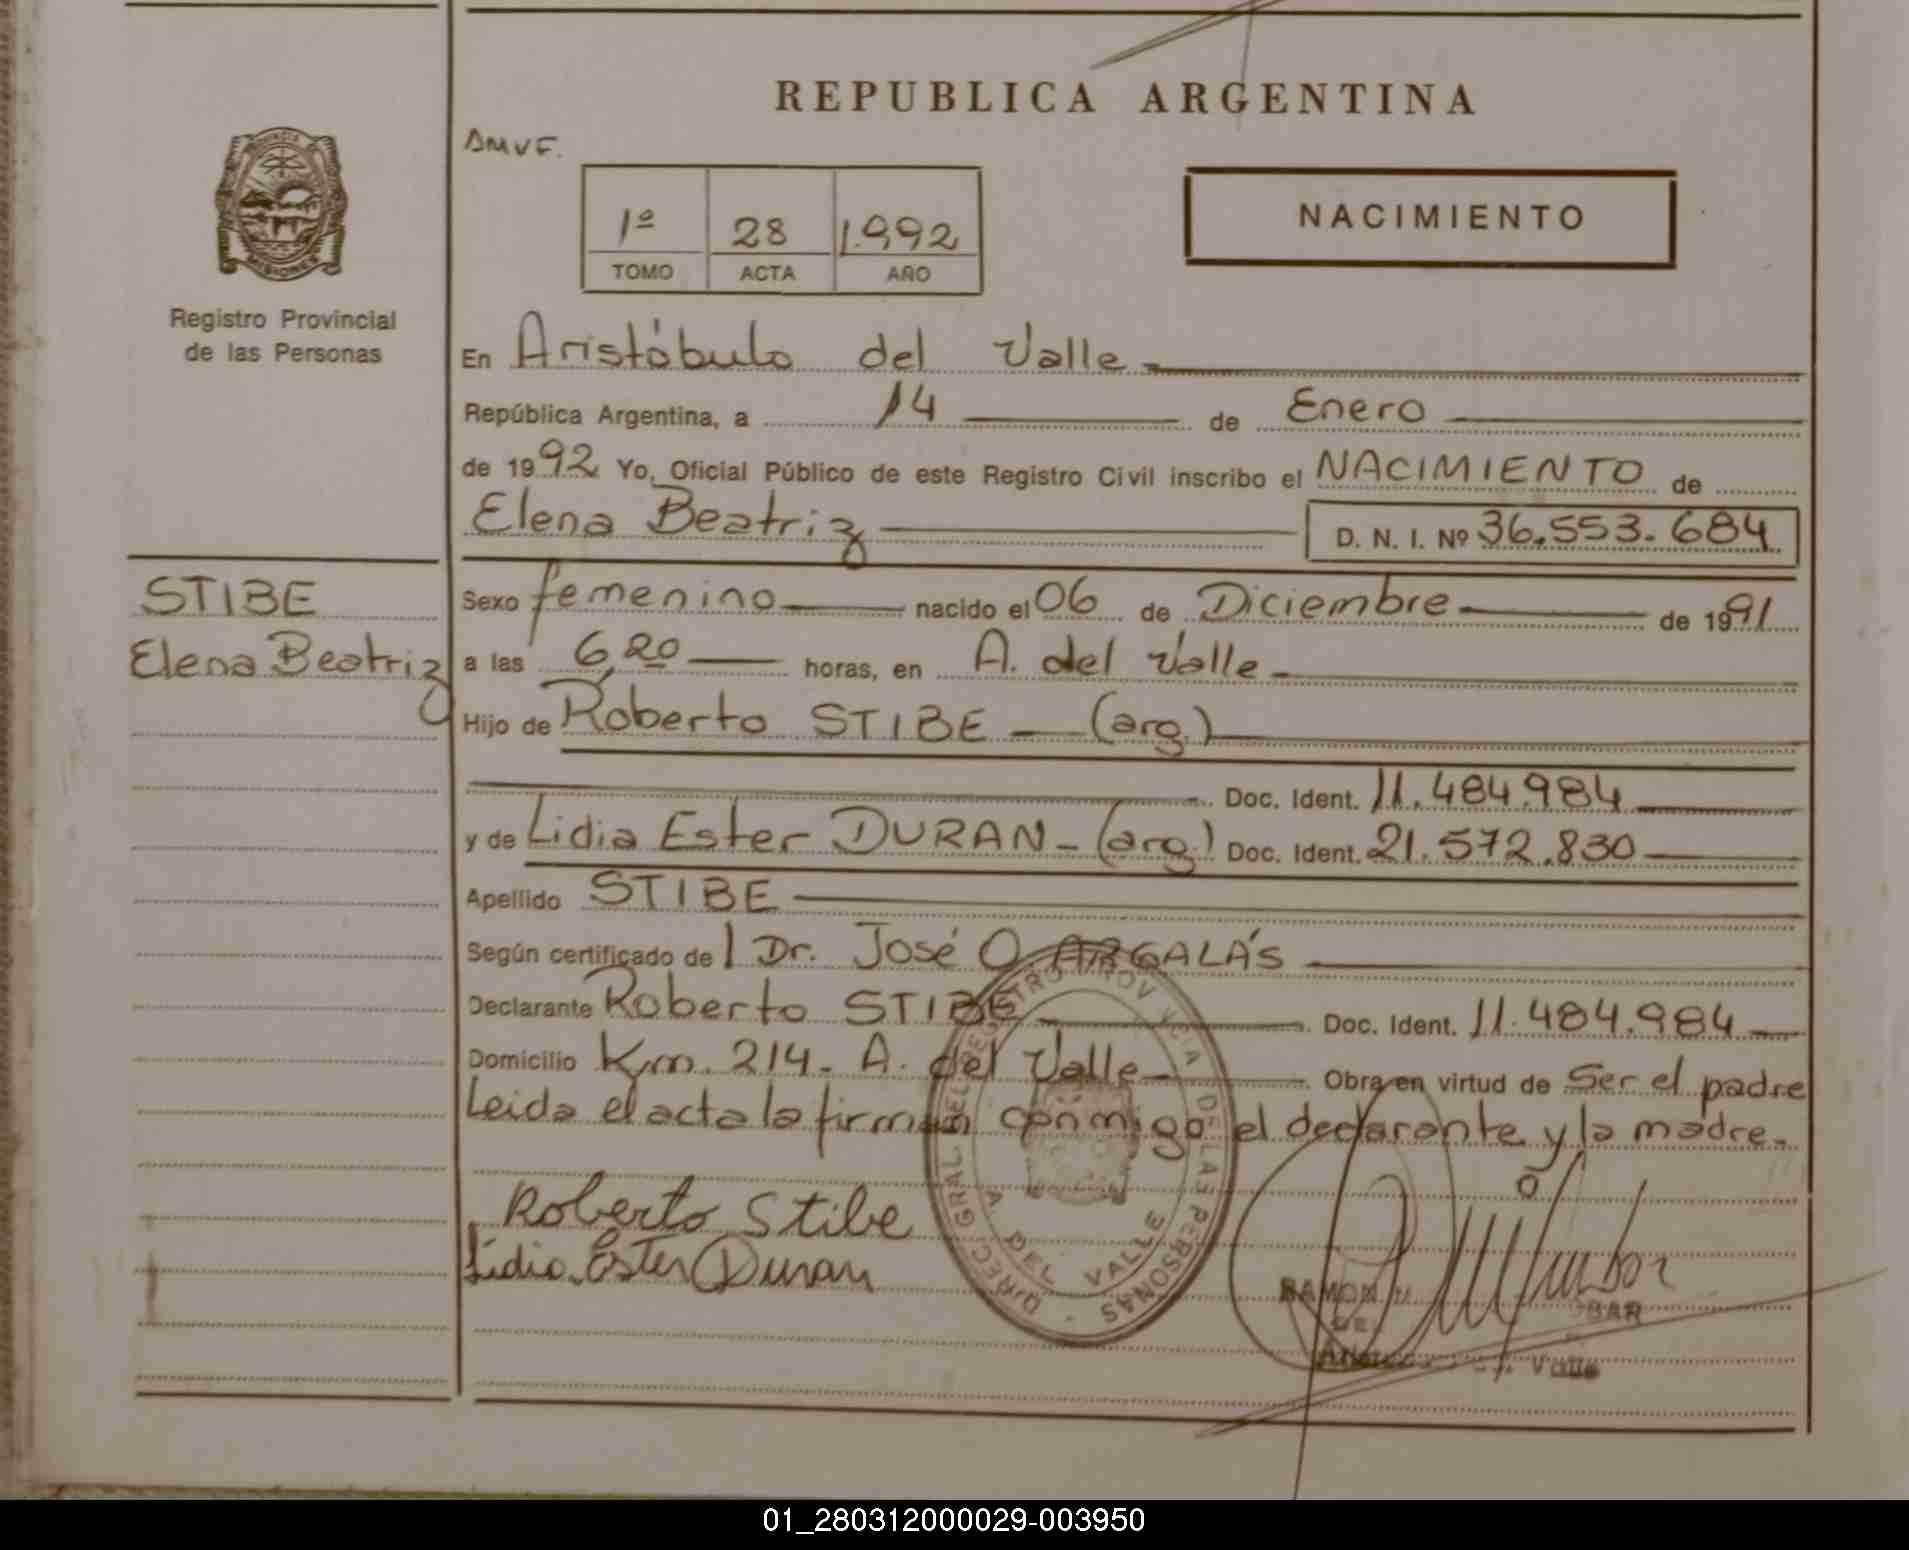 REPUBLICA ARGENTINA
DMVF.
1º 28 1.992
TOMO ACTA AÑO
NACIMIENTO
PROVINCIA
MISIONES
Registro Provincial
de las Personas
En Aristóbulo del Valle
República Argentina, a 14 de Enero
de 1992 Yo, Oficial Público de este Registro Civil inscribo el NACIMIENTO de
Elena Beatriz D. N. I. Nº 36.553.684
STIBE
Elena Beatriz
Sexo femenino nacido el 06 de Diciembre de 1991
a las 6,20 horas, en A. del Valle
Hijo de Roberto STIBE (arg.)
Doc. Ident. 11.484.984
y de Lidia Ester DURAN - (arg.) Doc. Ident. 21.572.830
Apellido STIBE
Según certificado del Dr. José O. ARGALÁS
Declarante Roberto STIBE Doc. Ident. 11.484.984
Domicilio Km. 214 - A. del Valle Obra en virtud de Ser el padre
Leida el acta la firman conmigo el declarante y la madre.
Roberto Stibe
Lidia Ester Duran
DIREC. GRAL DEL REGISTRO PROVINCIAL DE LAS PERSONAS
A. DEL VALLE
RAMON
BAR
Valle
01_280312000029-003950